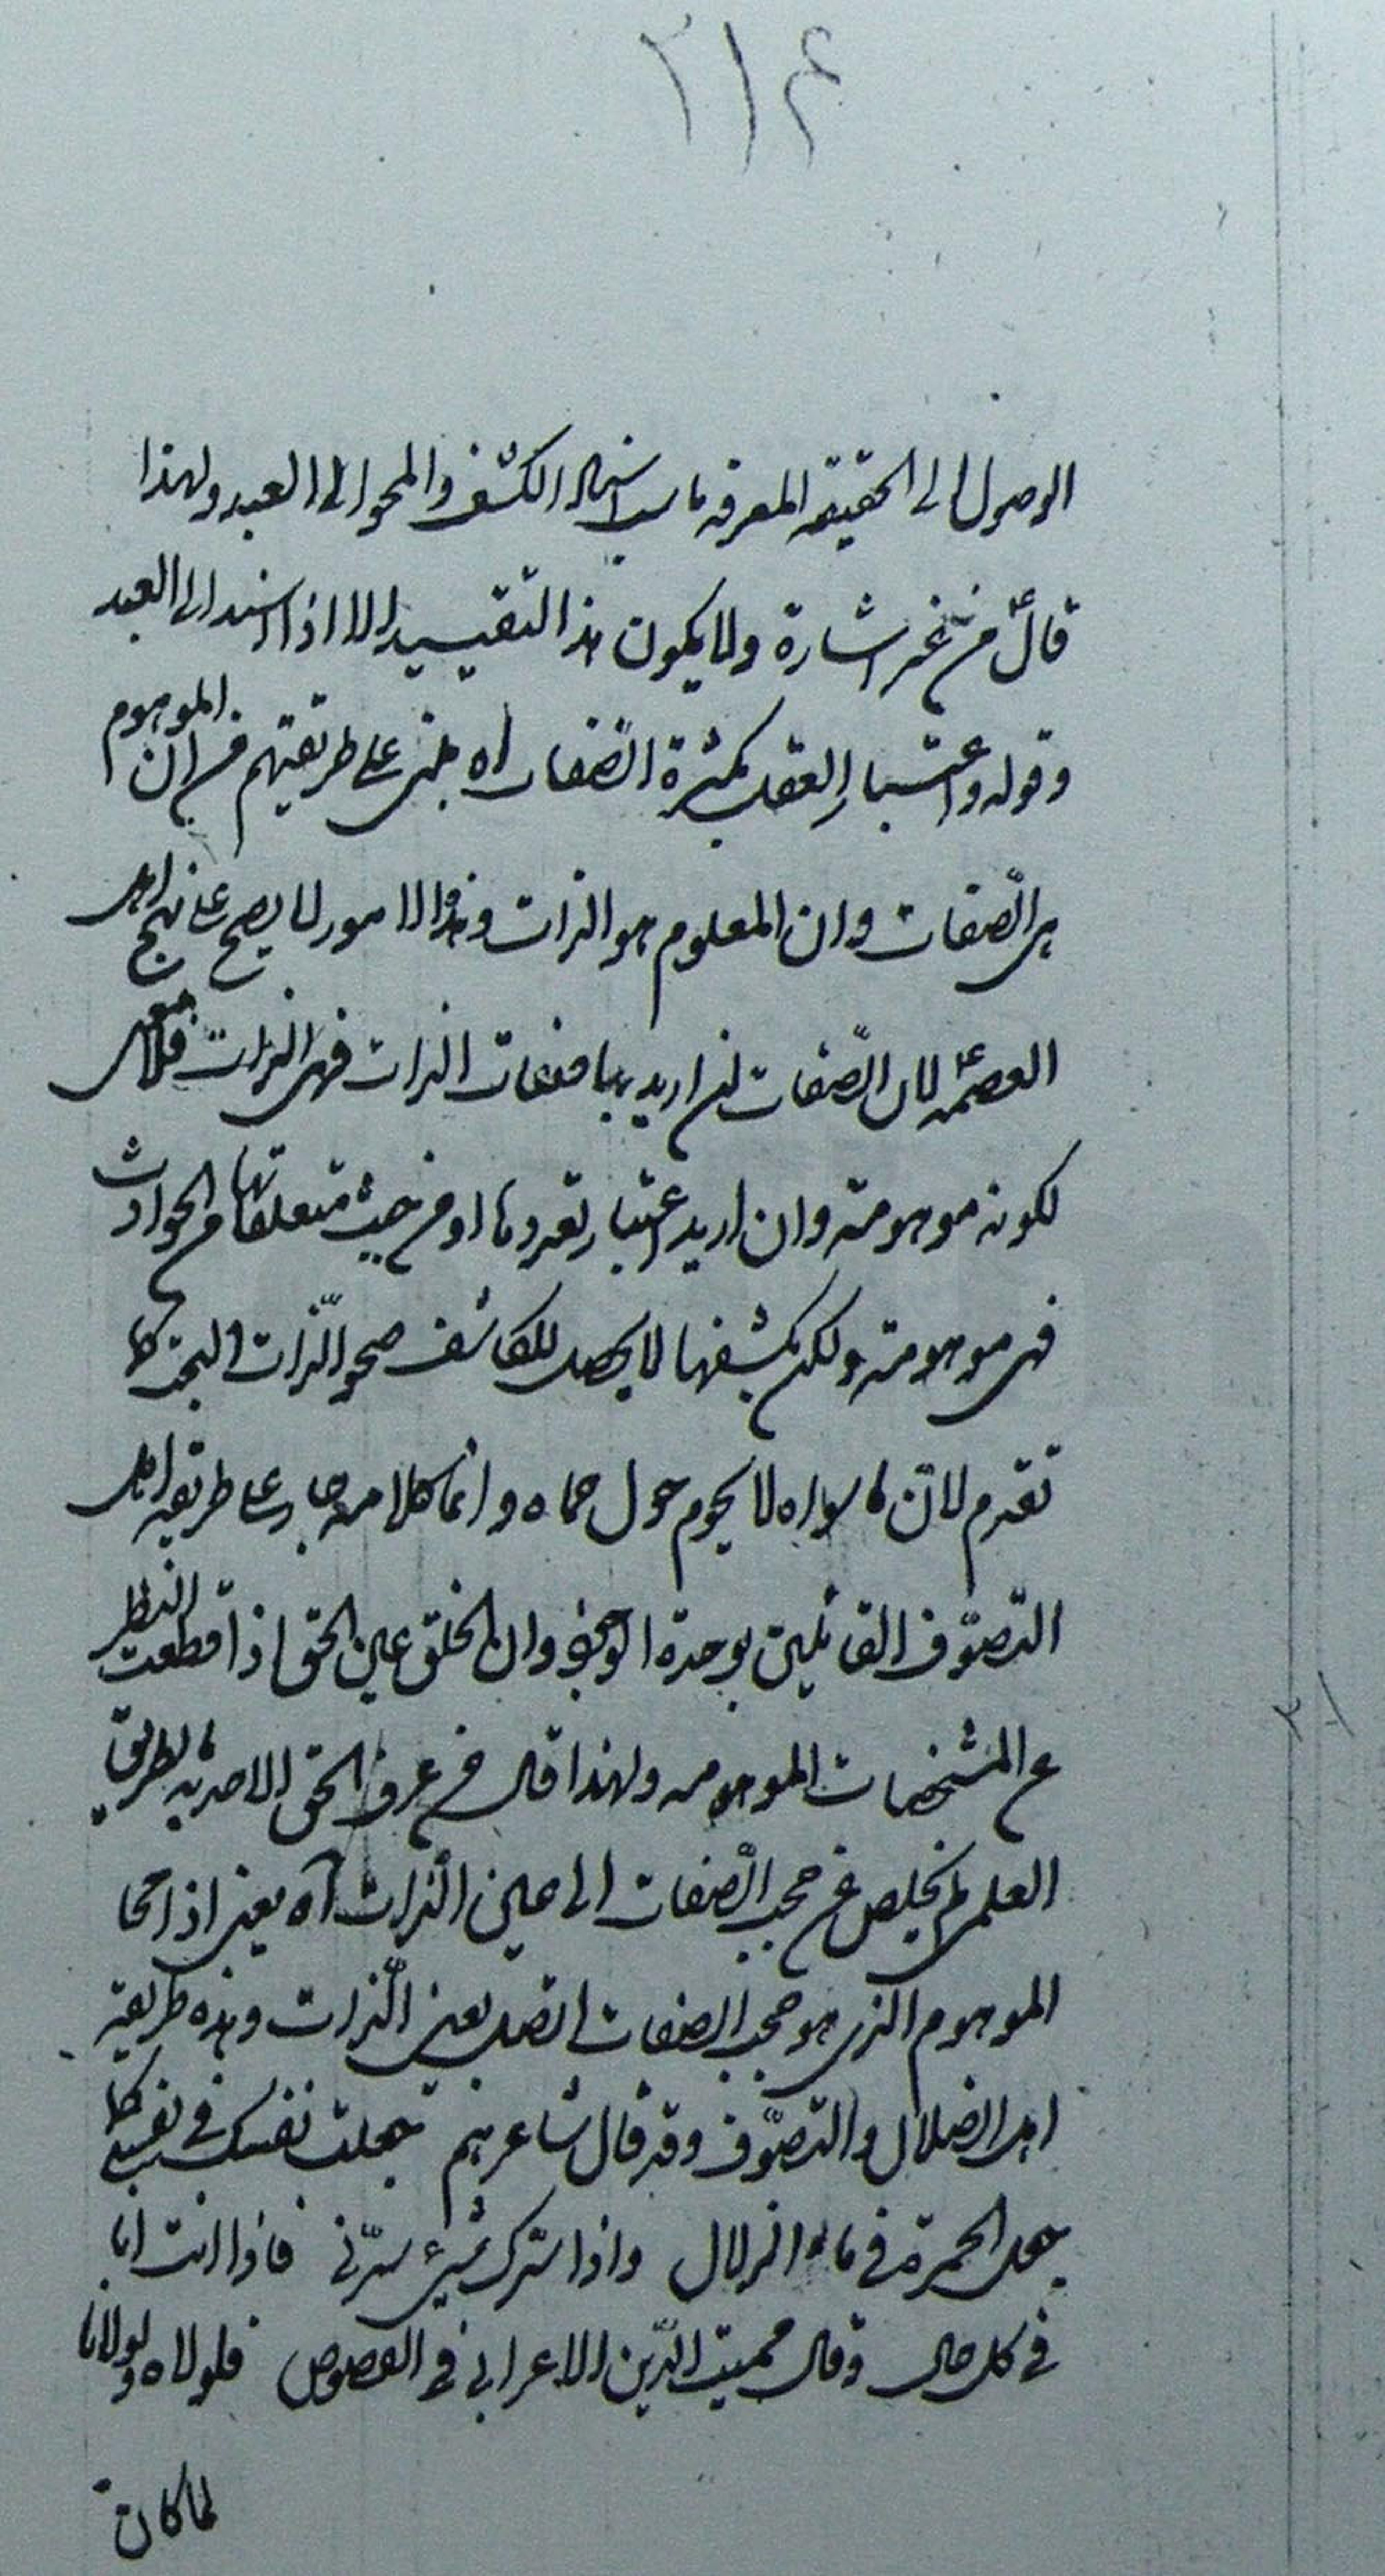 ۲۱۴
الوصول الى الحقيقة المعرفة ناسب اسناد الكشف والمحو الى العبد ولهذا
قال ع من غير اشارة ولا يكون هذا التقييد الا اذا اسند الى العبد
وقوله واعتبار العقل كثرة الصّفات اه مبنى على طريقتهم من ان الموهوم
هى الصّفات وان المعلوم هو الذات وهذا الامور لا يصح على نهج اهل
العصمة ع لان الصّفات ان اريد بها صفات الذات فهى الذات فلا معنى
لكونه موهومة وان اريد اعتبار تعددها او من حيث متعلقاتها من الحوادث
فهى موهومة ولكن بكشفها لا يحصل للكاشف صحو الذّات البحت كما
تقدم لانّ ما سواه لا يحوم حول حماه وانما كلامه جار على طريقة اهل
التصوّف القائلين بوحدة الوجود وان الخلق عين الحق اذا قطعت النظر
عن المشخصات الموهومة ولهذا قال من عرف الحق الاحدية بطريق
العلم لم يخلص عن حجب الصّفات الى عين الذّات آه يعنى اذا محا
الموهوم الذى هو حجب الصفات اتصل بعين الذّات وهذه طريقة
اهل الضلال والتصوّف وقد قال شاعرهم جعلت نفسك فى نفسى كما
جعل الخمرة فى ماء الزلال واذا سرّك شىء سرّنى فاذا انت انا
فى كل حال وقال مميت الدّين الاعرابى فى الفصوص فلولاه ولولانا
لما كان